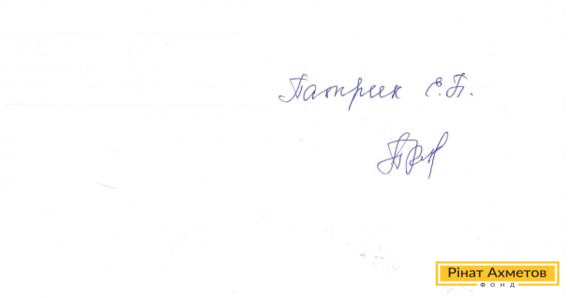 Патрик Є.П.
Рінат Ахметов
ФОНД